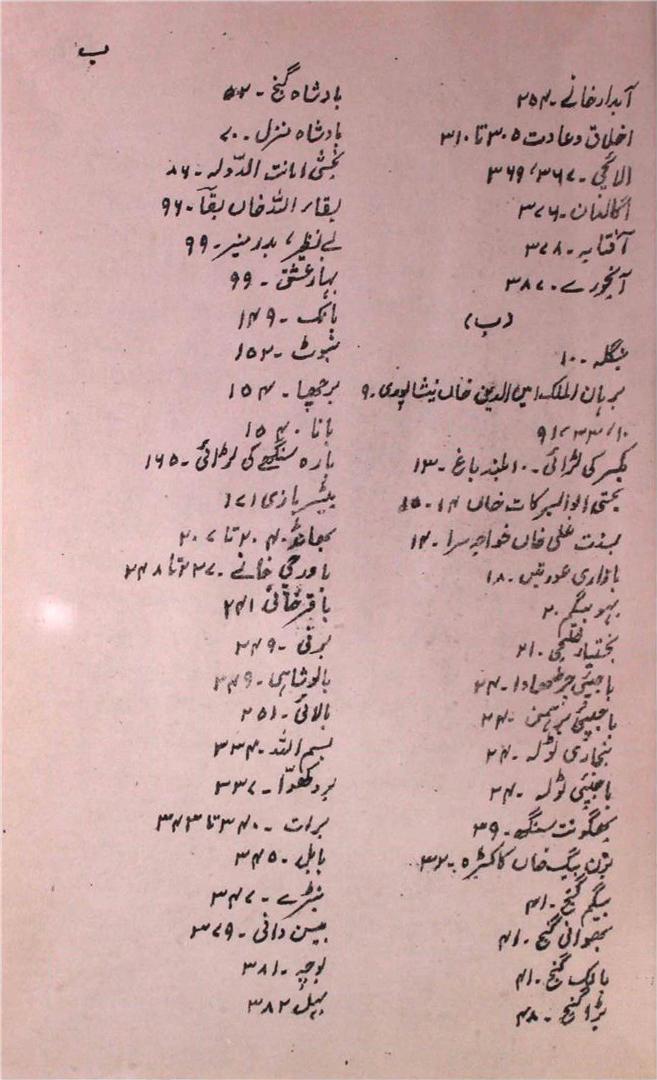 ب
آبدار خانے - ۲۵۴
اخلاق و عادت ۳۰۵ تا ۳۱۰
الائچی - ۳۶۷، ۳۶۹
اگالدان - ۳۷۶
آفتابہ - ۳۷۸
آبخورے - ۳۸۷
(ب)
بنگلہ - ۱۰
برہان الملک امین الدین خاں نیشاپوری - ۹
۱۰، ۳۳، ۹۱
بکسر کی لڑائی - ۱۰ بلند باغ - ۱۳
بختی ابوالبرکات خاں ۱۴ - ۱۵
بسنت علی خاں خواجہ سرا - ۱۴
بازاری عورتیں - ۱۸
بہو بیگم ۲۰
بختیار خلجی - ۲۱
باجپئی چڑھاوا - ۲۴
باجپئی برہمن - ۲۴
بنجاری ٹولہ - ۲۴
باجپئی ٹولہ - ۲۴
بھگونت سنگھ - ۳۹
بزن بیگ خاں کا کٹرہ - ۳۷
بیگم گنج - ۴۱
بھوانی گنج - ۴۱
بالک گنج - ۴۱
بڑا گنج - ۴۸
بادشاہ گنج - ۵۲
بادشاہ منزل - ۷۰
بخشی امانت الدولہ - ۸۶
بقاء اللہ خاں بقا - ۹۶
بے نظیر، بدر منیر - ۹۹
بہار عشق - ۹۹
بانک - ۱۴۹
بنوٹ - ۱۵۲
برچھا - ۱۵۴
بانا - ۱۵۴
بارہ سنگھے کی لڑائی - ۱۶۵
بٹیر بازی ۱۷۱
بھانڈ ۲۰۴ تا ۲۰۷
باورچی خانے - ۲۲۷ تا ۲۴۸
باقر خانی ۲۴۱
برفی - ۲۴۹
بالوشاہی - ۲۴۹
بالائی - ۲۵۱
بسم اللہ - ۳۳۴
بردکھوّا - ۳۳۷
برات - ۳۴۰ تا ۳۴۳
بابل - ۳۴۵
بنڑے - ۳۴۷
بیسن دانی - ۳۷۹
لوجہ - ۳۸۱
بہل ۳۸۲